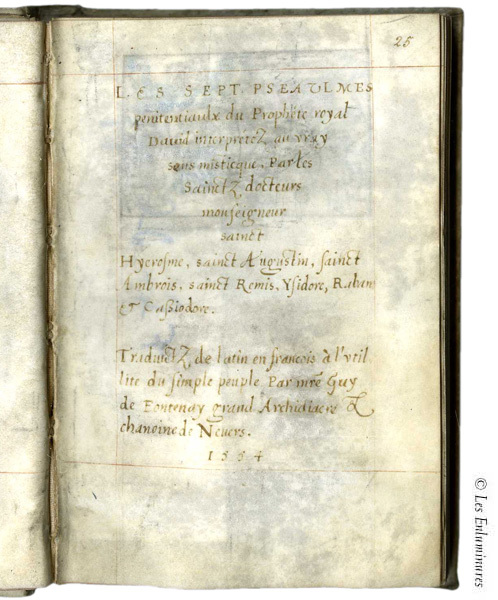 25
LES SEPT PSEAULMES
penitentiaulx du Prophete royal
Dauid interpretez au vray
sens misticque. Par les
Sainctz docteurs
monseigneur
sainct
Hyerosme, sainct Augustin, sainct
Ambrois, sainct Remis, Ysidore, Raban
& Cassiodore.
Traduictz de latin en francois à l'vtil
lite du simple peuple Par mre Guy
de Fontenay grand Archidiacre &
chanoine de Neuers.
1554
© Les Enluminures